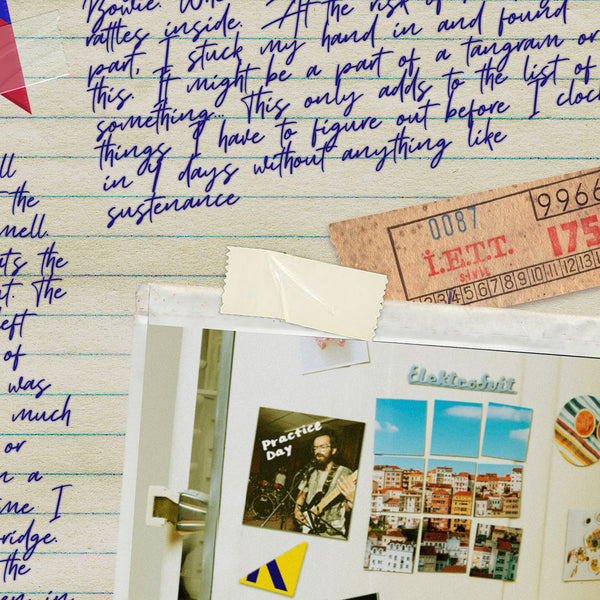 Bowie.
rattles inside. At the risk of
part, I stuck my hand in and found
this. It might be a part of a tangram or
something... This only adds to the list of
things I have to figure out before I clock
in 4 days without anything like
sustenance
ll
the
mell.
ats the
t. The
left
of
was
much
or
n a
ime I
ridge.
the
en in
0087
9966
İ.E.T.T.
175
SİVİL
2 3 4 5 6 7 8 9 10 11 12 13
Elektrosvit
Practice
Day